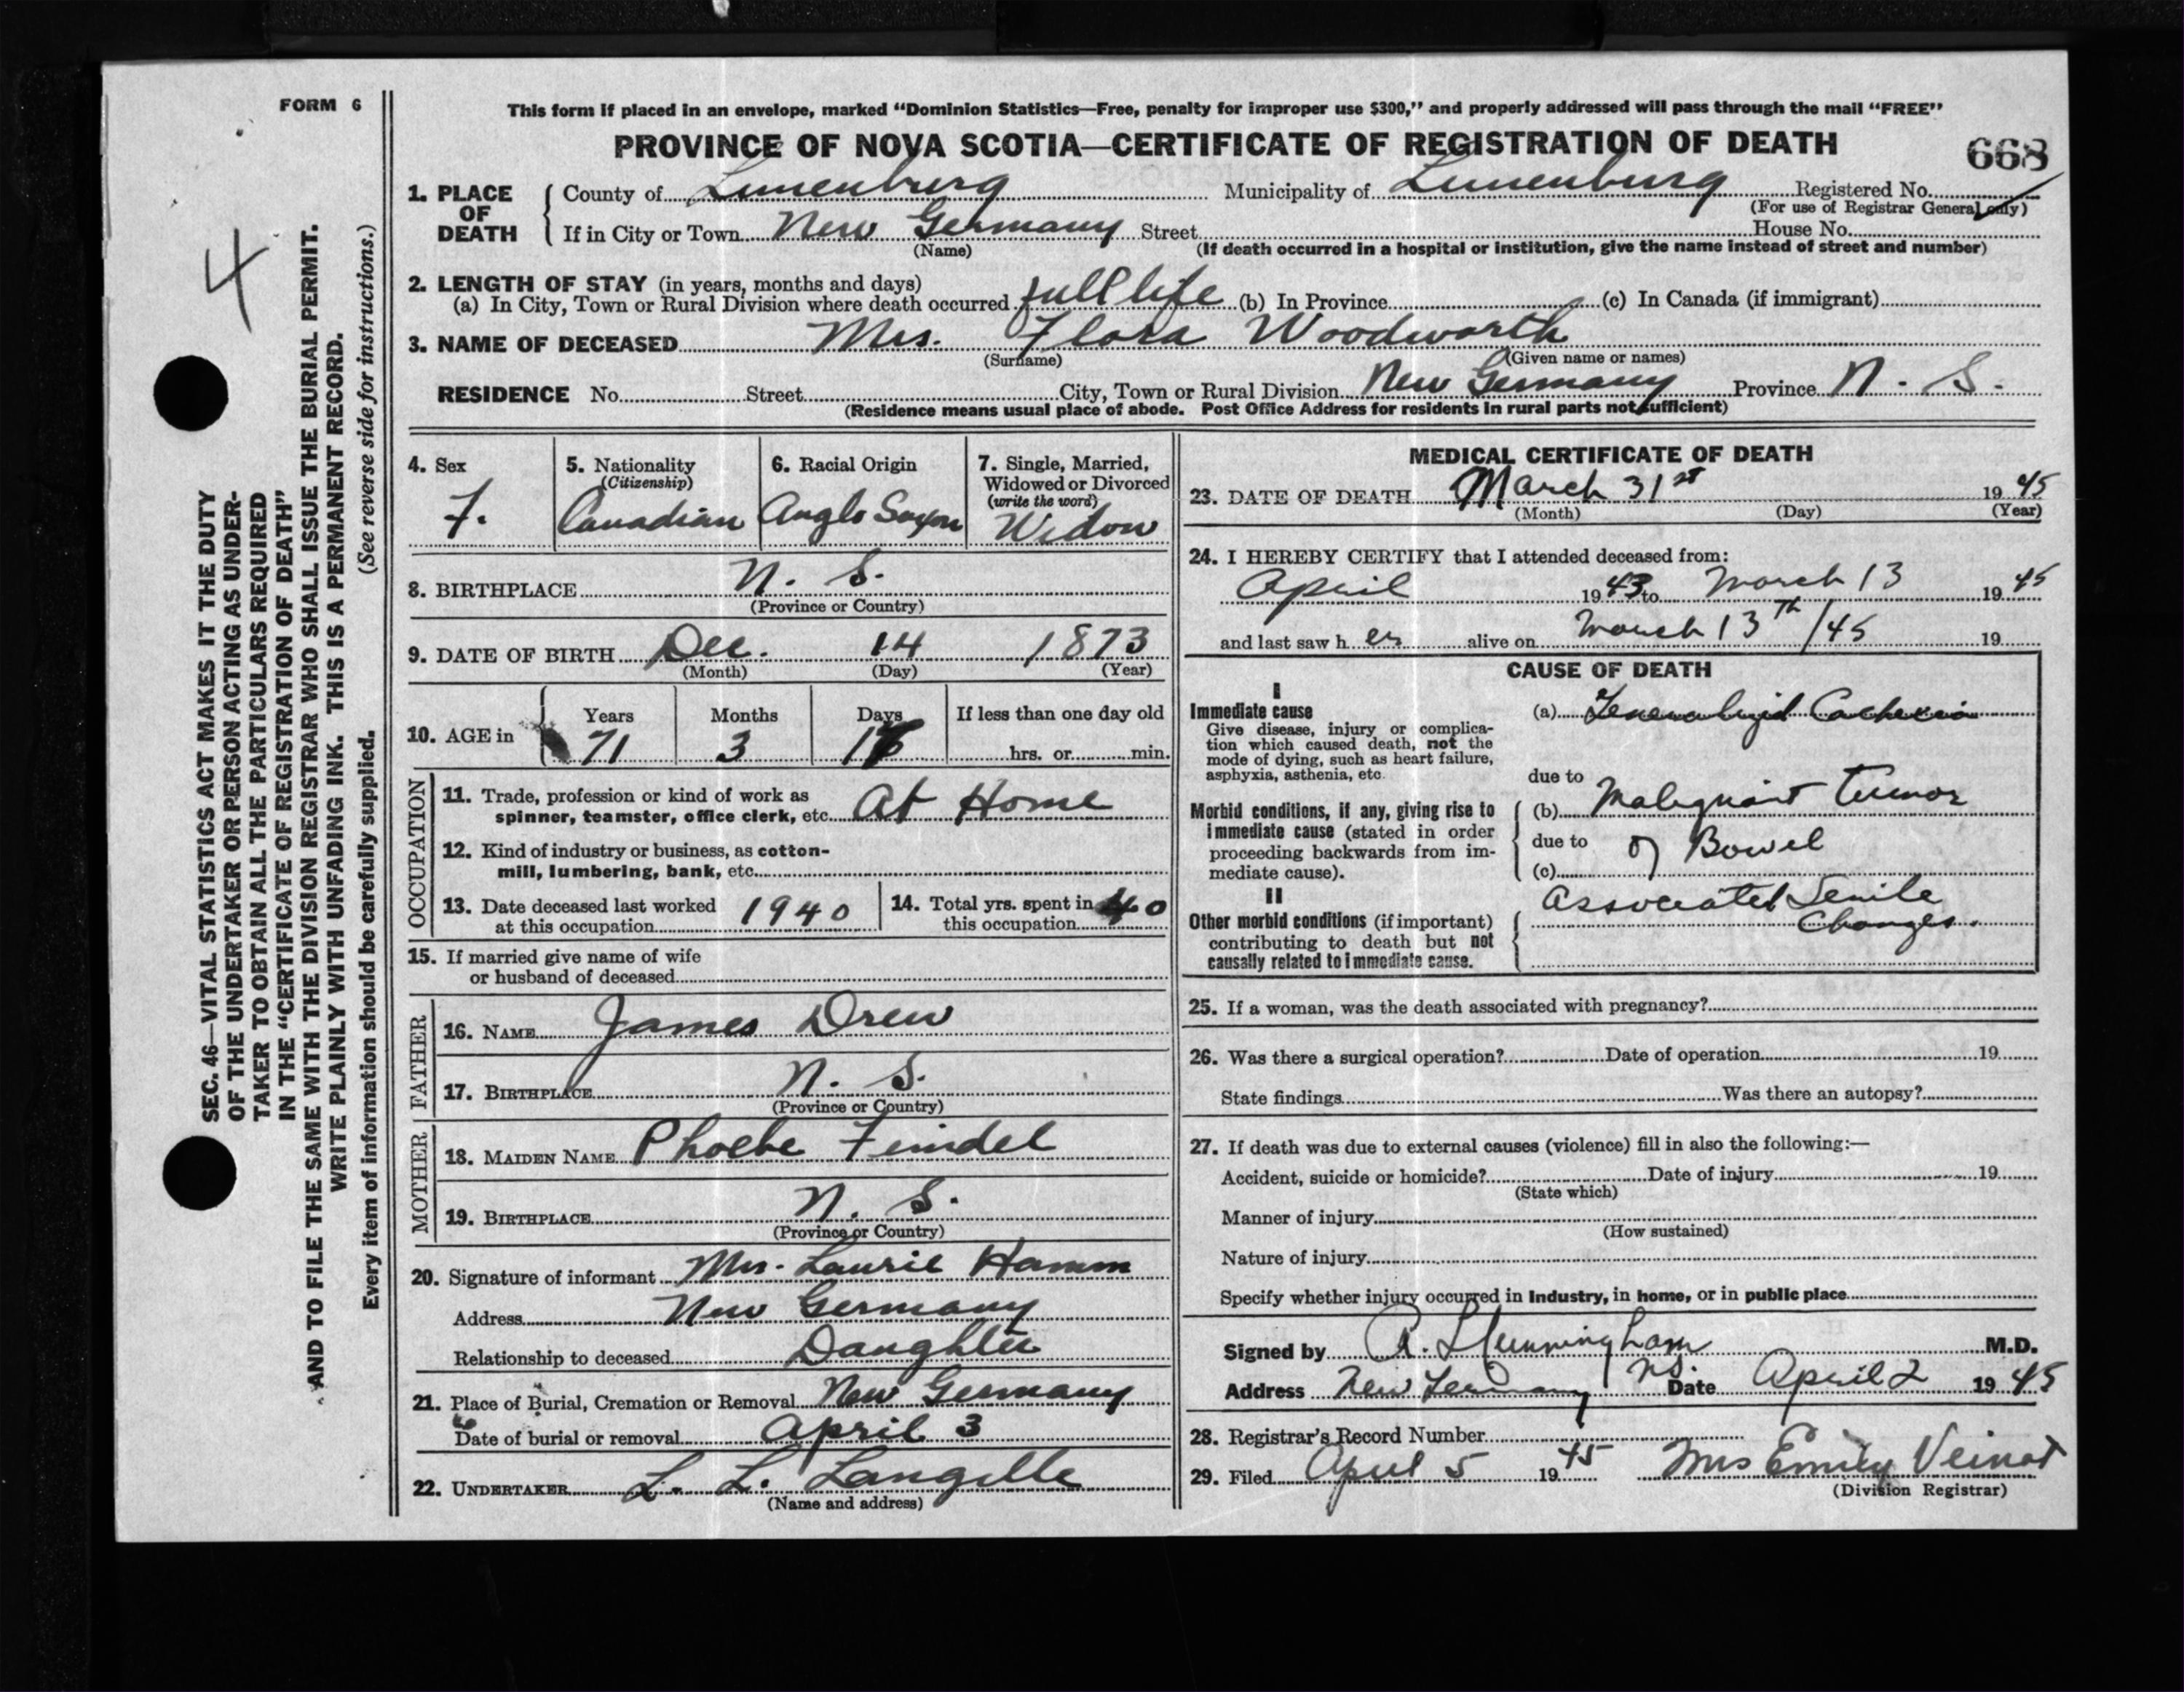 FORM 6
This form if placed in an envelope, marked “Dominion Statistics—Free, penalty for improper use $300,” and properly addressed will pass through the mail “FREE”
PROVINCE OF NOVA SCOTIA—CERTIFICATE OF REGISTRATION OF DEATH
668
1. PLACE OF DEATH
County of Lunenburg Municipality of Lunenburg Registered No.
(For use of Registrar General only)
If in City or Town New Germany Street House No.
(Name) (If death occurred in a hospital or institution, give the name instead of street and number)
2. LENGTH OF STAY (in years, months and days)
(a) In City, Town or Rural Division where death occurred full life (b) In Province (c) In Canada (if immigrant)
3. NAME OF DECEASED Mrs. Flora Woodworth
(Surname) (Given name or names)
RESIDENCE No. Street City, Town or Rural Division New Germany Province N. S.
(Residence means usual place of abode. Post Office Address for residents in rural parts not sufficient)
4
SEC. 46—VITAL STATISTICS ACT MAKES IT THE DUTY
OF THE UNDERTAKER OR PERSON ACTING AS UNDER-
TAKER TO OBTAIN ALL THE PARTICULARS REQUIRED
IN THE “CERTIFICATE OF REGISTRATION OF DEATH”
AND TO FILE THE SAME WITH THE DIVISION REGISTRAR WHO SHALL ISSUE THE BURIAL PERMIT.
WRITE PLAINLY WITH UNFADING INK. THIS IS A PERMANENT RECORD.
Every item of information should be carefully supplied. (See reverse side for instructions.)
4. Sex
F.
5. Nationality
(Citizenship)
Canadian
6. Racial Origin
Anglo Saxon
7. Single, Married,
Widowed or Divorced
(write the word)
Widow
8. BIRTHPLACE N. S.
(Province or Country)
9. DATE OF BIRTH Dec. 14 1873
(Month) (Day) (Year)
10. AGE in
Years Months Days If less than one day old
71 3 hrs. or min.
OCCUPATION
11. Trade, profession or kind of work as
spinner, teamster, office clerk, etc. At Home
12. Kind of industry or business, as cotton-
mill, lumbering, bank, etc.
13. Date deceased last worked
at this occupation 1940
14. Total yrs. spent in
this occupation 40
15. If married give name of wife
or husband of deceased
FATHER
16. NAME James Drew
17. BIRTHPLACE N. S.
(Province or Country)
MOTHER
18. MAIDEN NAME Phoebe Feindel
19. BIRTHPLACE N. S.
(Province or Country)
20. Signature of informant Mrs. Laurie Hamm
Address New Germany
Relationship to deceased Daughter
21. Place of Burial, Cremation or Removal New Germany
Date of burial or removal April 3
22. UNDERTAKER L. L. Langille
(Name and address)
MEDICAL CERTIFICATE OF DEATH
23. DATE OF DEATH March 31st 1945
(Month) (Day) (Year)
24. I HEREBY CERTIFY that I attended deceased from:
April 1943 to March 13 1945
and last saw her alive on March 13th/45 19
CAUSE OF DEATH
I
Immediate cause
Give disease, injury or complica-
tion which caused death, not the
mode of dying, such as heart failure,
asphyxia, asthenia, etc.
(a) Generalized Cachexia
due to
Morbid conditions, if any, giving rise to
immediate cause (stated in order
proceeding backwards from im-
mediate cause).
(b) Malignant Tumor
due to of Bowel
(c)
II
Other morbid conditions (if important)
contributing to death but not
causally related to immediate cause.
Associated Senile
Changes.
25. If a woman, was the death associated with pregnancy?
26. Was there a surgical operation? Date of operation 19
State findings Was there an autopsy?
27. If death was due to external causes (violence) fill in also the following:—
Accident, suicide or homicide? Date of injury 19
(State which)
Manner of injury
(How sustained)
Nature of injury
Specify whether injury occurred in industry, in home, or in public place
Signed by M.D.
Address New Germany NS. Date April 2 1945
28. Registrar's Record Number
29. Filed April 5 1945 Mrs Emily Veinot
(Division Registrar)